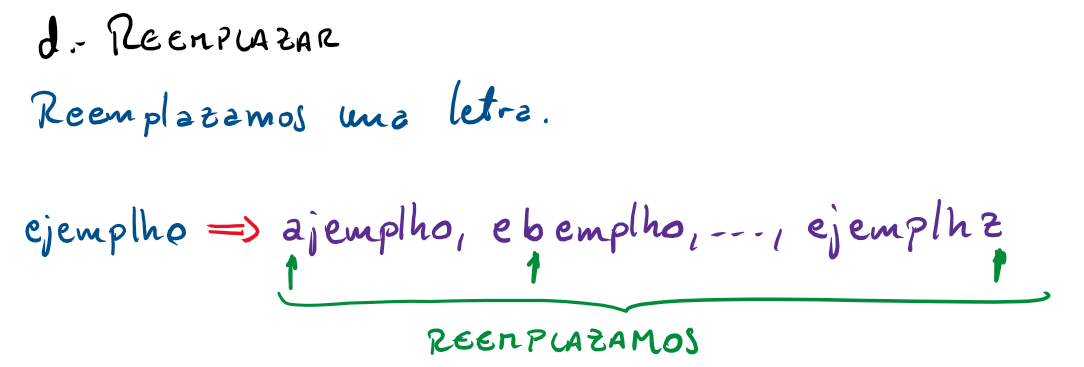 d.- REEMPLAZAR
Reemplazamos una letra.
ejemplho ⇒ ajemplho, ebemplho,..., ejemplhz
REEMPLAZAMOS